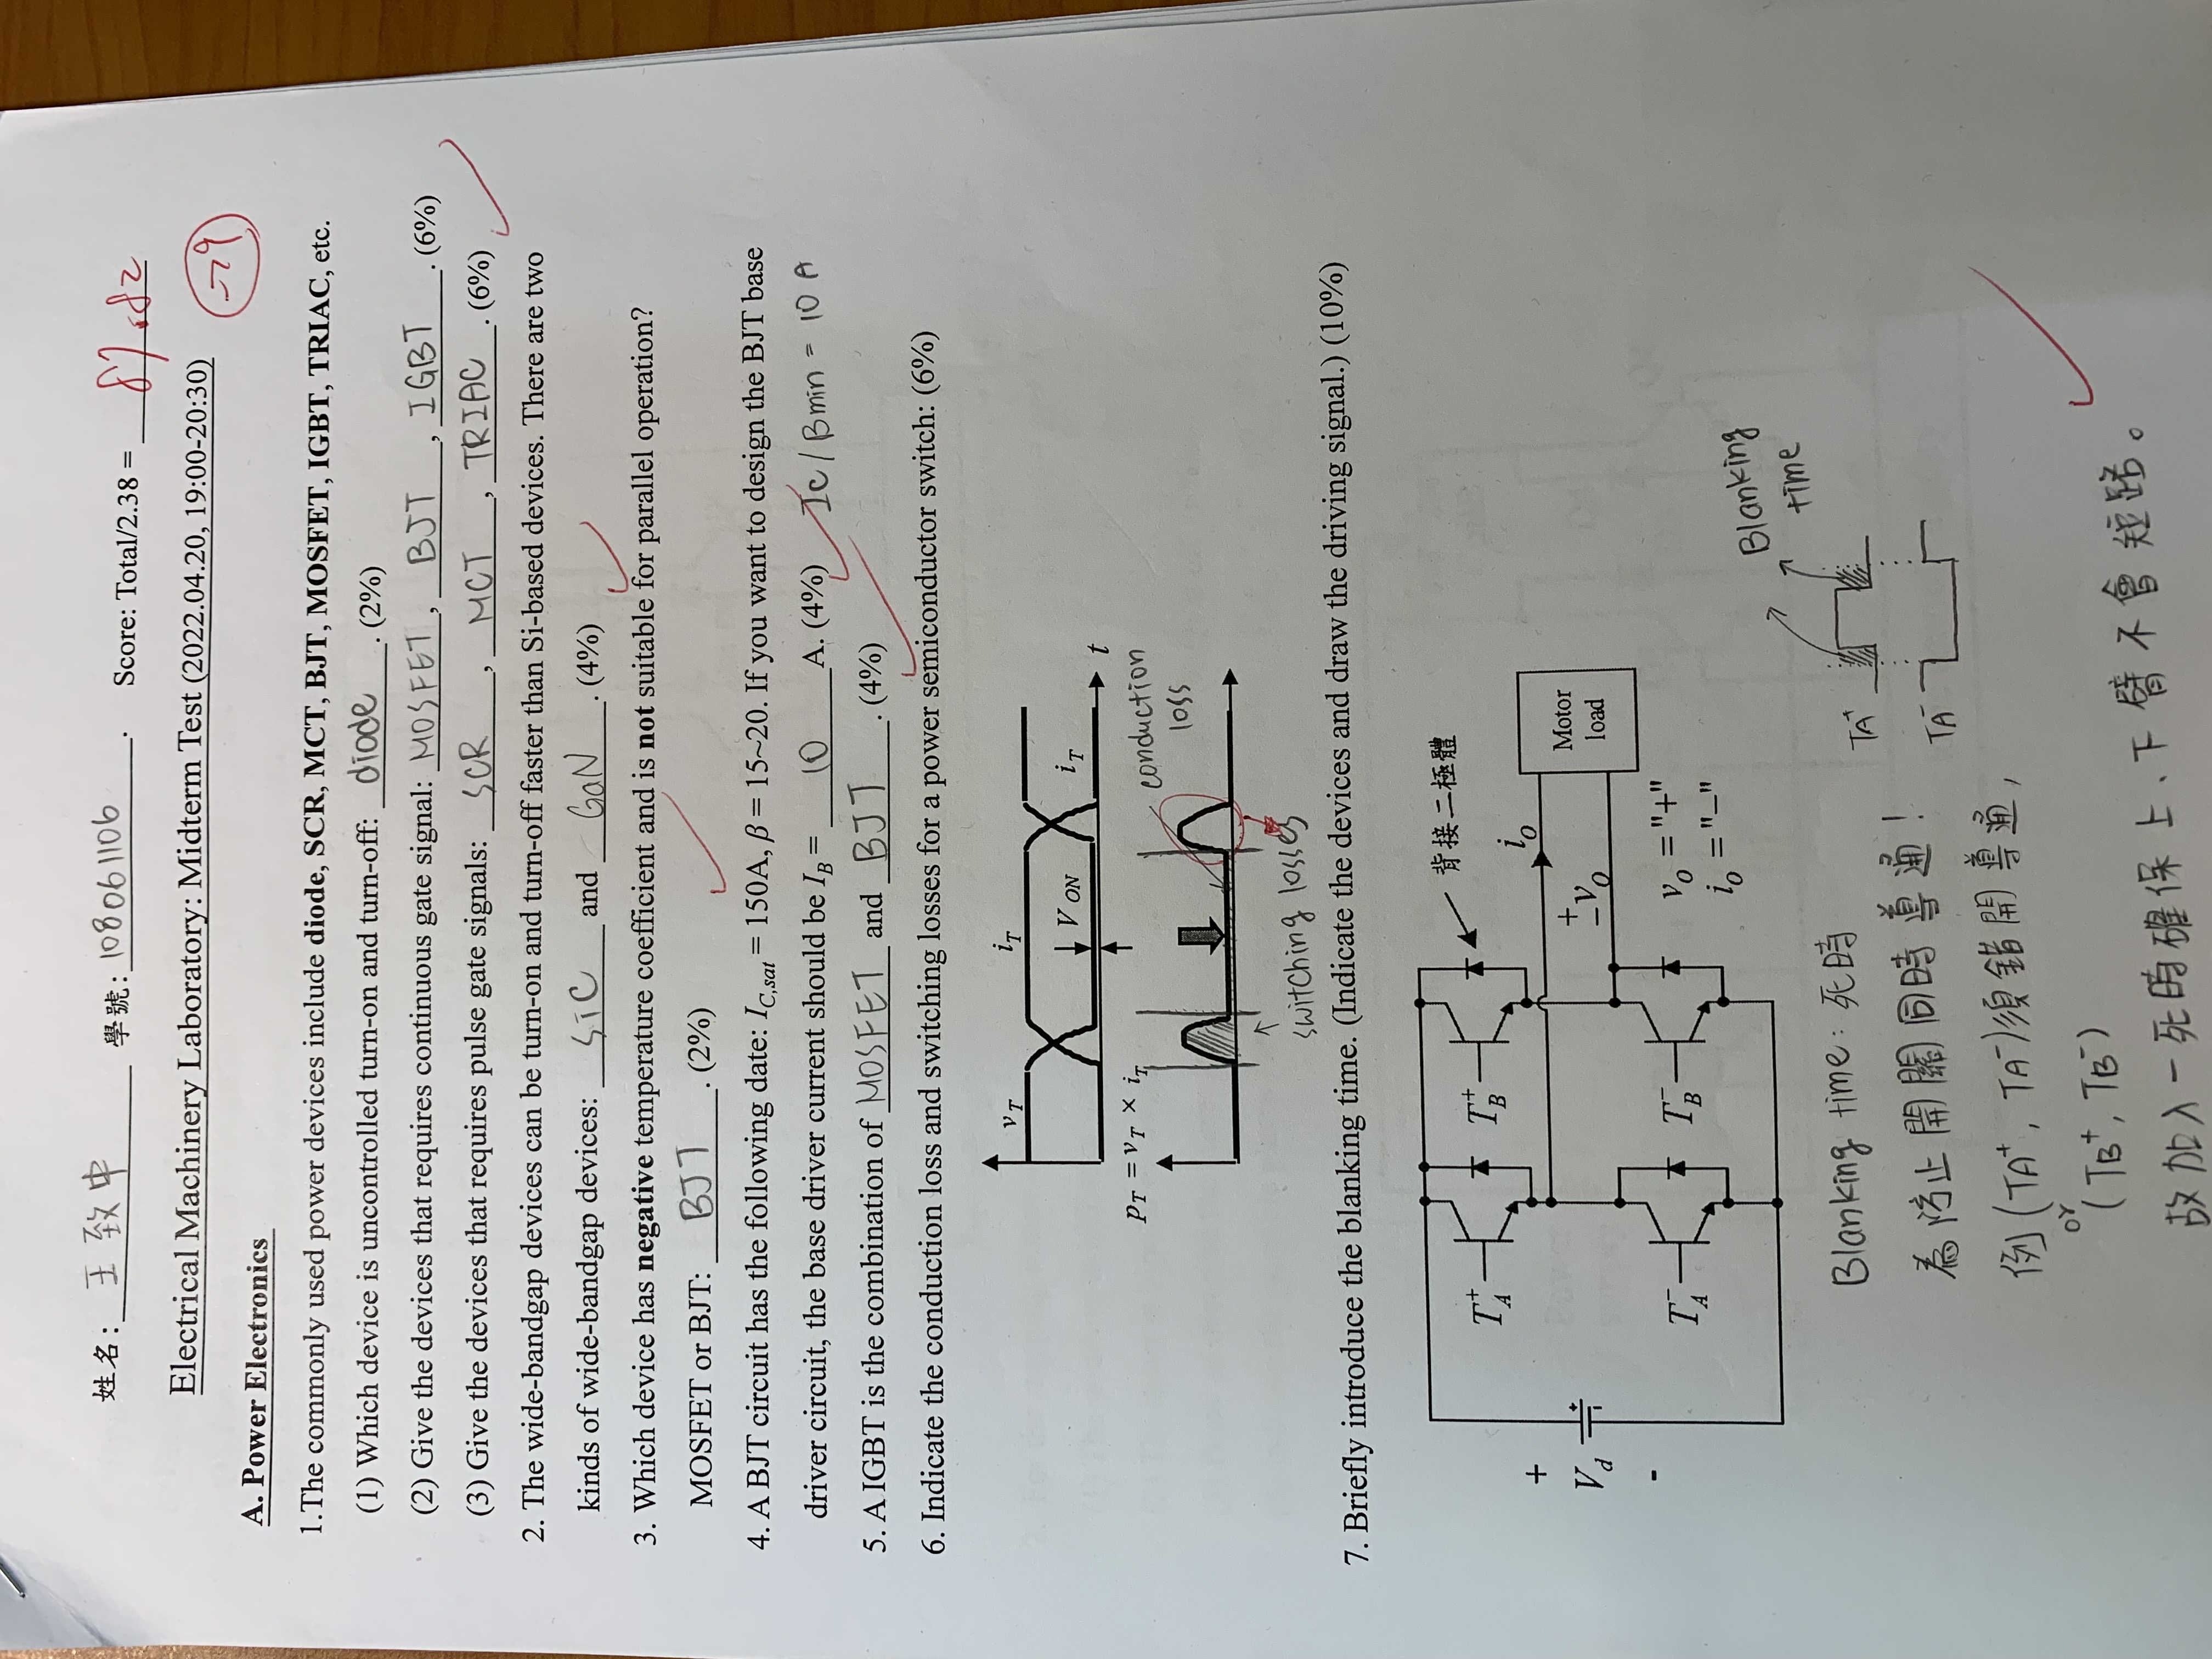 姓名: 王致中 學號: 108061106. Score: Total/2.38 = 87.82
Electrical Machinery Laboratory: Midterm Test (2022.04.20, 19:00-20:30)
-29
A. Power Electronics
1.The commonly used power devices include diode, SCR, MCT, BJT, MOSFET, IGBT, TRIAC, etc.
(1) Which device is uncontrolled turn-on and turn-off: diode. (2%)
(2) Give the devices that requires continuous gate signal: MOSFET, BJT, IGBT. (6%)
(3) Give the devices that requires pulse gate signals: SCR, MCT, TRIAC. (6%)
2. The wide-bandgap devices can be turn-on and turn-off faster than Si-based devices. There are two
kinds of wide-bandgap devices: SiC and GaN. (4%)
3. Which device has negative temperature coefficient and is not suitable for parallel operation?
MOSFET or BJT: BJT. (2%)
4. A BJT circuit has the following date: I_C,sat = 150A, β = 15~20. If you want to design the BJT base
driver circuit, the base driver current should be I_B = 10 A. (4%) Ic / Bmin = 10 A
5. A IGBT is the combination of MOSFET and BJT. (4%)
6. Indicate the conduction loss and switching losses for a power semiconductor switch: (6%)
v_T i_T
V_ON i_T
t
p_T = v_T × i_T
conduction
loss
switching losses
7. Briefly introduce the blanking time. (Indicate the devices and draw the driving signal.) (10%)
背接二極體
T_A^+ T_B^+
i_o
+
V_d
-
+
- v_o
Motor
load
T_A^- T_B^-
v_o = "+"
i_o = "−"
Blanking
time
Blanking time: 死時
TA^+
為防止開關同時導通!
TA^-
例(TA^+, TA^-)須錯開導通,
or
(TB^+, TB^-)
故加入一死時確保上、下臂不會短路。